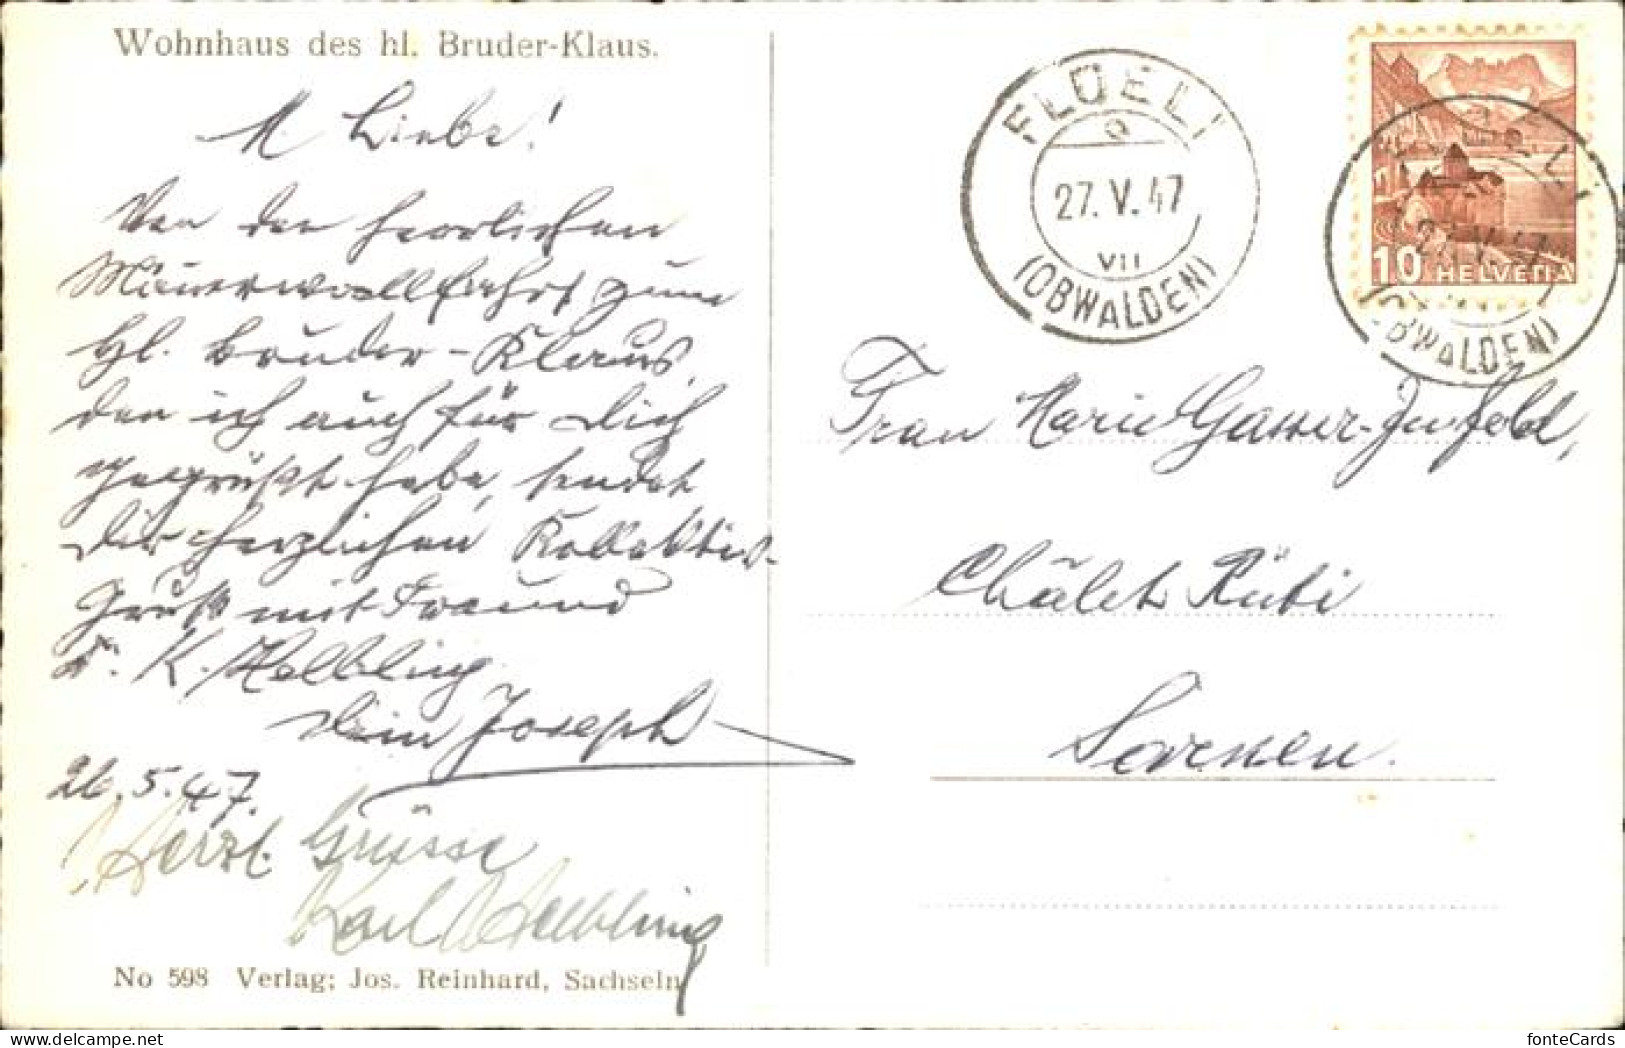 Wohnhaus des hl. Bruder-Klaus.
M. Liebe!
Von der herrlichen
Männerwallfahrt zum
Hl. Bruder-Klaus,
den ich auch für Dich
gegrüßt habe, sendet
Dir herzlichen Kollektiv-
Gruß mit Freund
K. Helbling
Dein Joseph
26.5.47.
Herzl. Grüsse
Karl Helbling
No 598 Verlag; Jos. Reinhard, Sachseln
FLÜELI
27.V.47
VII
(OBWALDEN)
10 HELVETIA
(OBWALDEN)
Frau Marie Gasser-Imfeld,
Châlet Rüti
Sarnen.
fonteCards